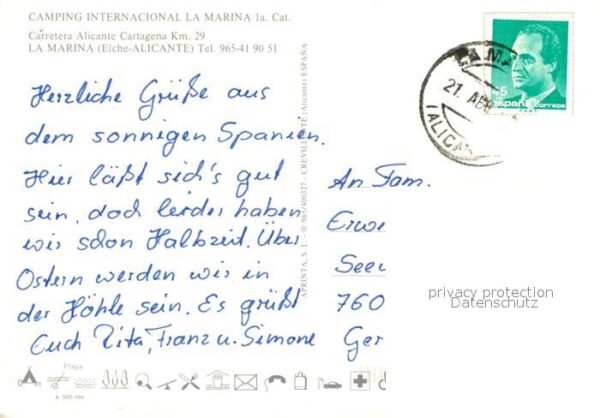 CAMPING INTERNACIONAL LA MARINA 1a. Cat.
Carretera Alicante Cartagena Km. 29
LA MARINA (Elche-ALICANTE) Tel. 965-41 90 51
Herzliche Grüße aus
dem sonnigen Spanien.
Hier läßt sich's gut
sein, doch leider haben
wir schon Halbzeit. Über
Ostern werden wir in
der Höhle sein. Es grüßt
Euch Rita, Franz u. Simone
APRINTA, S. L. - ☎ 965/400327 - CREVILLENTE (Alicante) ESPAÑA
An Fam.
Erwe
Seer
760
Ger
21. AB
(ALICAN
45
España Correos
privacy protection
Datenschutz
Playa
A 500 mts.